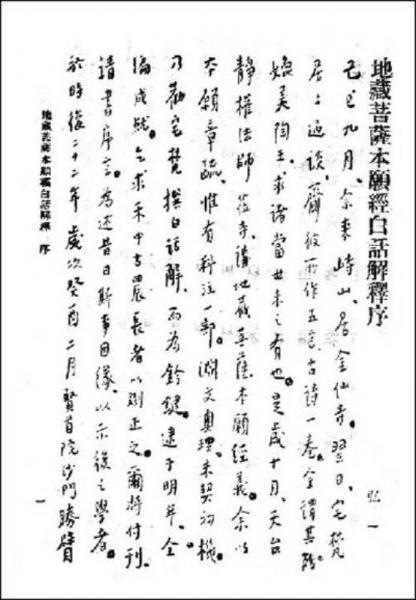 地藏菩薩本願經白話解釋序
弘一
己巳九月、余來峙山、居金仙寺。翌日、宅梵
居士過談、齎彼所作五言古詩一卷。余謂其能
媲美陶王、求諸當世未之有也。是歲十月、天台
靜權法師蒞寺、講地藏菩薩本願經義。余以
本願章疏、惟有科注一部。淵文奧理、未契初機。
乃勸宅梵撰白話解、而為鈐鍵。逮于明年、全
編成就。乞求禾中古農長者以刪正之。爾將付刊、
請書序言。為述昔日斯事因緣、以示後之學者。
於時後二十二年歲次癸酉二月賢首院沙門勝臂
地藏菩薩本願經白話解釋 序
一